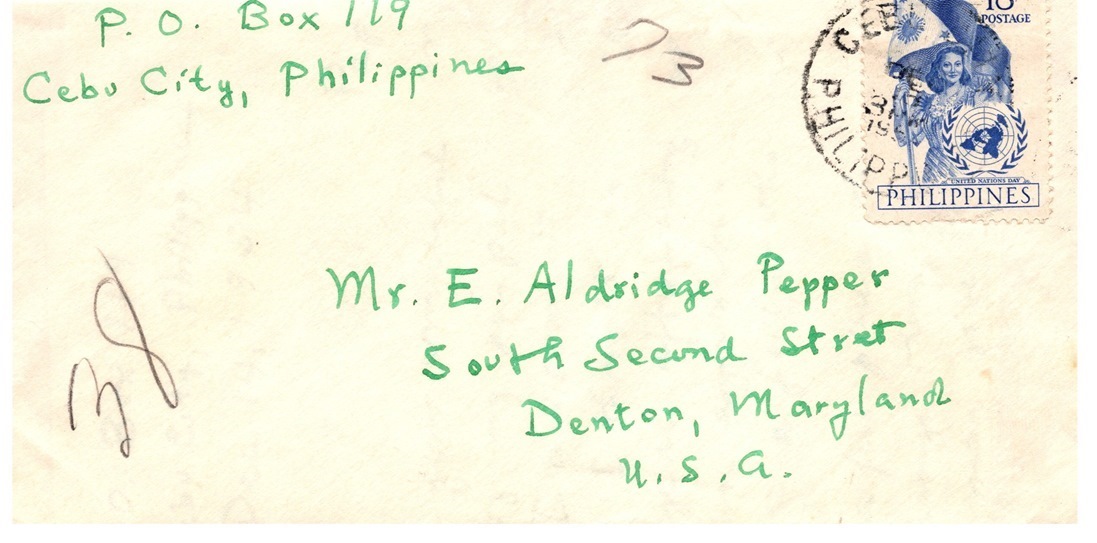 P. O. Box 119
Cebu City, Philippines
73
18
POSTAGE
CEB
PHILIPP
DE
31
19
UNITED NATIONS DAY
PHILIPPINES
Mr. E. Aldridge Pepper
South Second Stret
Denton, Maryland
U. S. A.